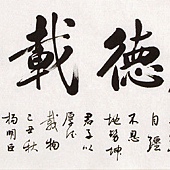 德載
自彊
不息
地勢坤
君子以
厚德
載物
己丑秋
楊明臣